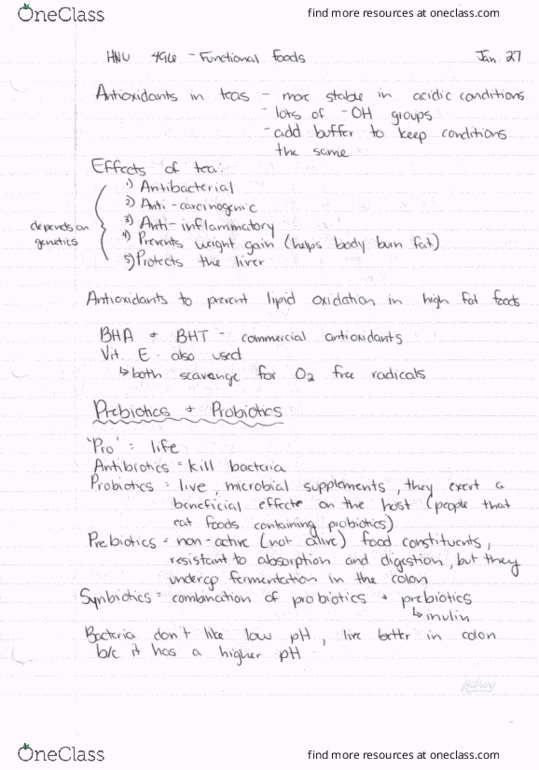 OneClass find more resources at oneclass.com
HNU - Functional foods Jan. 27
Antioxidants in teas - more stable in acidic conditions
- lots of -OH groups
- add buffer to keep conditions
the same
Effects of tea:
1) Antibacterial
2) Anti-carcinogenic
3) Anti-inflammatory
depends on genetics
4) Prevents weight gain (helps body burn fat)
5) Protects the liver
Antioxidants to prevent lipid oxidation in high fat foods
BHA + BHT - commercial antioxidants
Vit. E - also used
↳ both scavange for O2 free radicals
Prebiotics + Probiotics
"Pro" = life
Antibiotics = kill bacteria
Probiotics = live, microbial supplements, they exert a
beneficial effect on the host (people that
eat foods containing probiotics)
Prebiotics = non-active (not alive) food constituents,
resistant to absorption and digestion, but they
undergo fermentation in the colon
Synbiotics = combination of probiotics + prebiotics
↳ inulin
Bacteria don't like low pH, live better in colon
b/c it has a higher pH
OneClass find more resources at oneclass.com